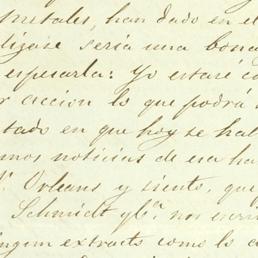 metales, han dado en el
dígase sería una bona
esperarla: Yo estaré co
r accion lo que podrá
tado en que hoy se hal
mos noticias de esa ha
Orleans y siento, que
Schmidt y Cª. nos escri
ingun extracto como lo